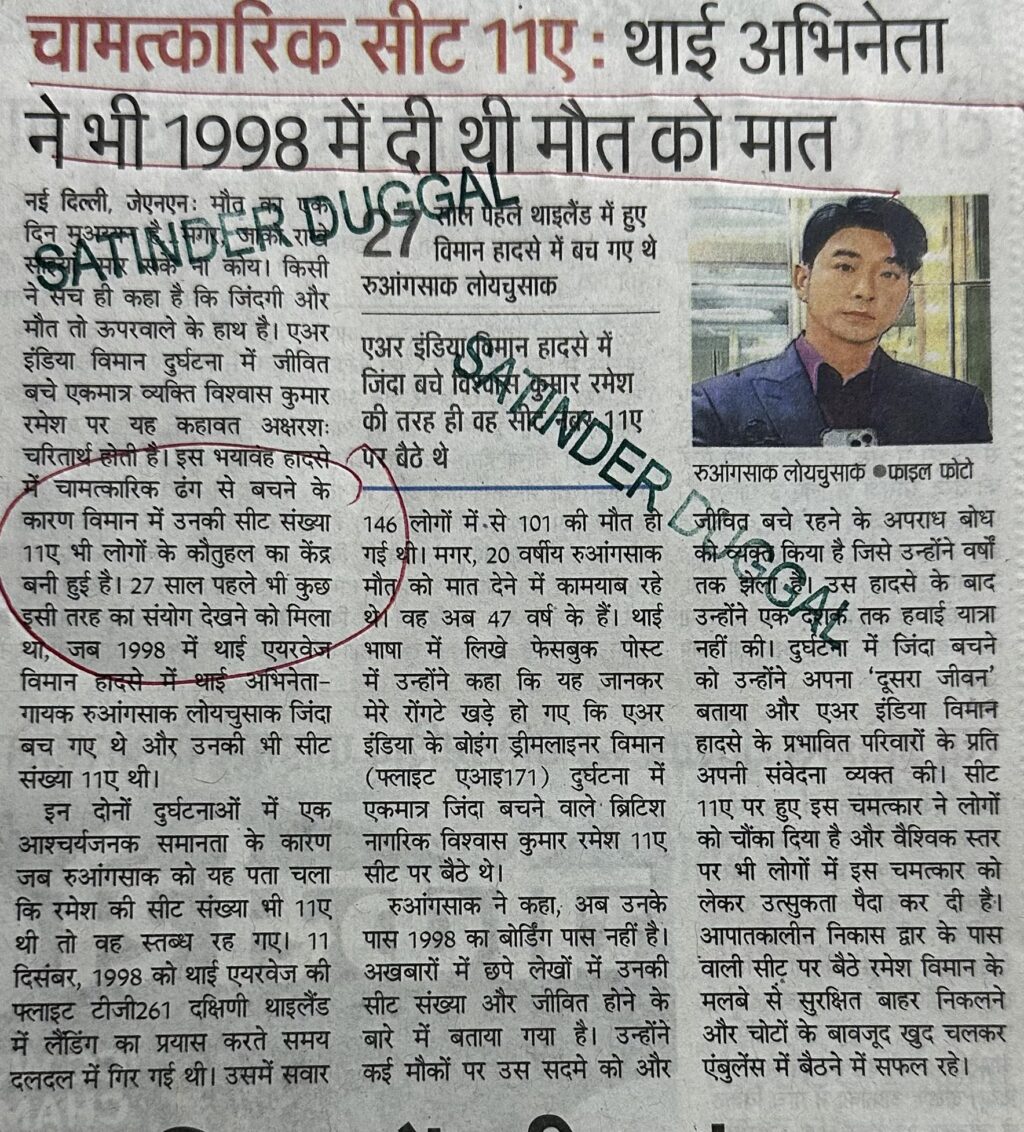 चामत्कारिक सीट 11ए : थाई अभिनेता
ने भी 1998 में दी थी मौत को मात
नई दिल्ली, जेएनएन: मौत का एक
दिन मुअय्यन है। मगर, जाको राखे
साइयां मार सके ना कोय। किसी
ने सच ही कहा है कि जिंदगी और
मौत तो ऊपरवाले के हाथ है। एअर
इंडिया विमान दुर्घटना में जीवित
बचे एकमात्र व्यक्ति विश्वास कुमार
रमेश पर यह कहावत अक्षरशः
चरितार्थ होती है। इस भयावह हादसे
में चामत्कारिक ढंग से बचने के
कारण विमान में उनकी सीट संख्या
11ए भी लोगों के कौतुहल का केंद्र
बनी हुई है। 27 साल पहले भी कुछ
इसी तरह का संयोग देखने को मिला
था, जब 1998 में थाई एयरवेज
विमान हादसे में थाई अभिनेता-
गायक रुआंगसाक लोयचुसाक जिंदा
बच गए थे और उनकी भी सीट
संख्या 11ए थी।
इन दोनों दुर्घटनाओं में एक
आश्चर्यजनक समानता के कारण
जब रुआंगसाक को यह पता चला
कि रमेश की सीट संख्या भी 11ए
थी तो वह स्तब्ध रह गए। 11
दिसंबर, 1998 को थाई एयरवेज की
फ्लाइट टीजी261 दक्षिणी थाइलैंड
में लैंडिंग का प्रयास करते समय
दलदल में गिर गई थी। उसमें सवार
27 साल पहले थाइलैंड में हुए
विमान हादसे में बच गए थे
रुआंगसाक लोयचुसाक
एअर इंडिया विमान हादसे में
जिंदा बचे विश्वास कुमार रमेश
की तरह ही वह सीट नंबर 11ए
पर बैठे थे
146 लोगों में से 101 की मौत हो
गई थी। मगर, 20 वर्षीय रुआंगसाक
मौत को मात देने में कामयाब रहे
थे। वह अब 47 वर्ष के हैं। थाई
भाषा में लिखे फेसबुक पोस्ट
में उन्होंने कहा कि यह जानकर
मेरे रोंगटे खड़े हो गए कि एअर
इंडिया के बोइंग ड्रीमलाइनर विमान
(फ्लाइट एआइ171) दुर्घटना में
एकमात्र जिंदा बचने वाले ब्रिटिश
नागरिक विश्वास कुमार रमेश 11ए
सीट पर बैठे थे।
रुआंगसाक ने कहा, अब उनके
पास 1998 का बोर्डिंग पास नहीं है।
अखबारों में छपे लेखों में उनकी
सीट संख्या और जीवित होने के
बारे में बताया गया है। उन्होंने
कई मौकों पर उस सदमे को और
रुआंगसाक लोयचुसाक ●फाइल फोटो
जीवित बचे रहने के अपराध बोध
को व्यक्त किया है जिसे उन्होंने वर्षों
तक झेला है। उस हादसे के बाद
उन्होंने एक दशक तक हवाई यात्रा
नहीं की। दुर्घटना में जिंदा बचने
को उन्होंने अपना ‘दूसरा जीवन’
बताया और एअर इंडिया विमान
हादसे के प्रभावित परिवारों के प्रति
अपनी संवेदना व्यक्त की। सीट
11ए पर हुए इस चमत्कार ने लोगों
को चौंका दिया है और वैश्विक स्तर
पर भी लोगों में इस चमत्कार को
लेकर उत्सुकता पैदा कर दी है।
आपातकालीन निकास द्वार के पास
वाली सीट पर बैठे रमेश विमान के
मलबे से सुरक्षित बाहर निकलने
और चोटों के बावजूद खुद चलकर
एंबुलेंस में बैठने में सफल रहे।
SATINDER DUGGAL
SATINDER DUGGAL